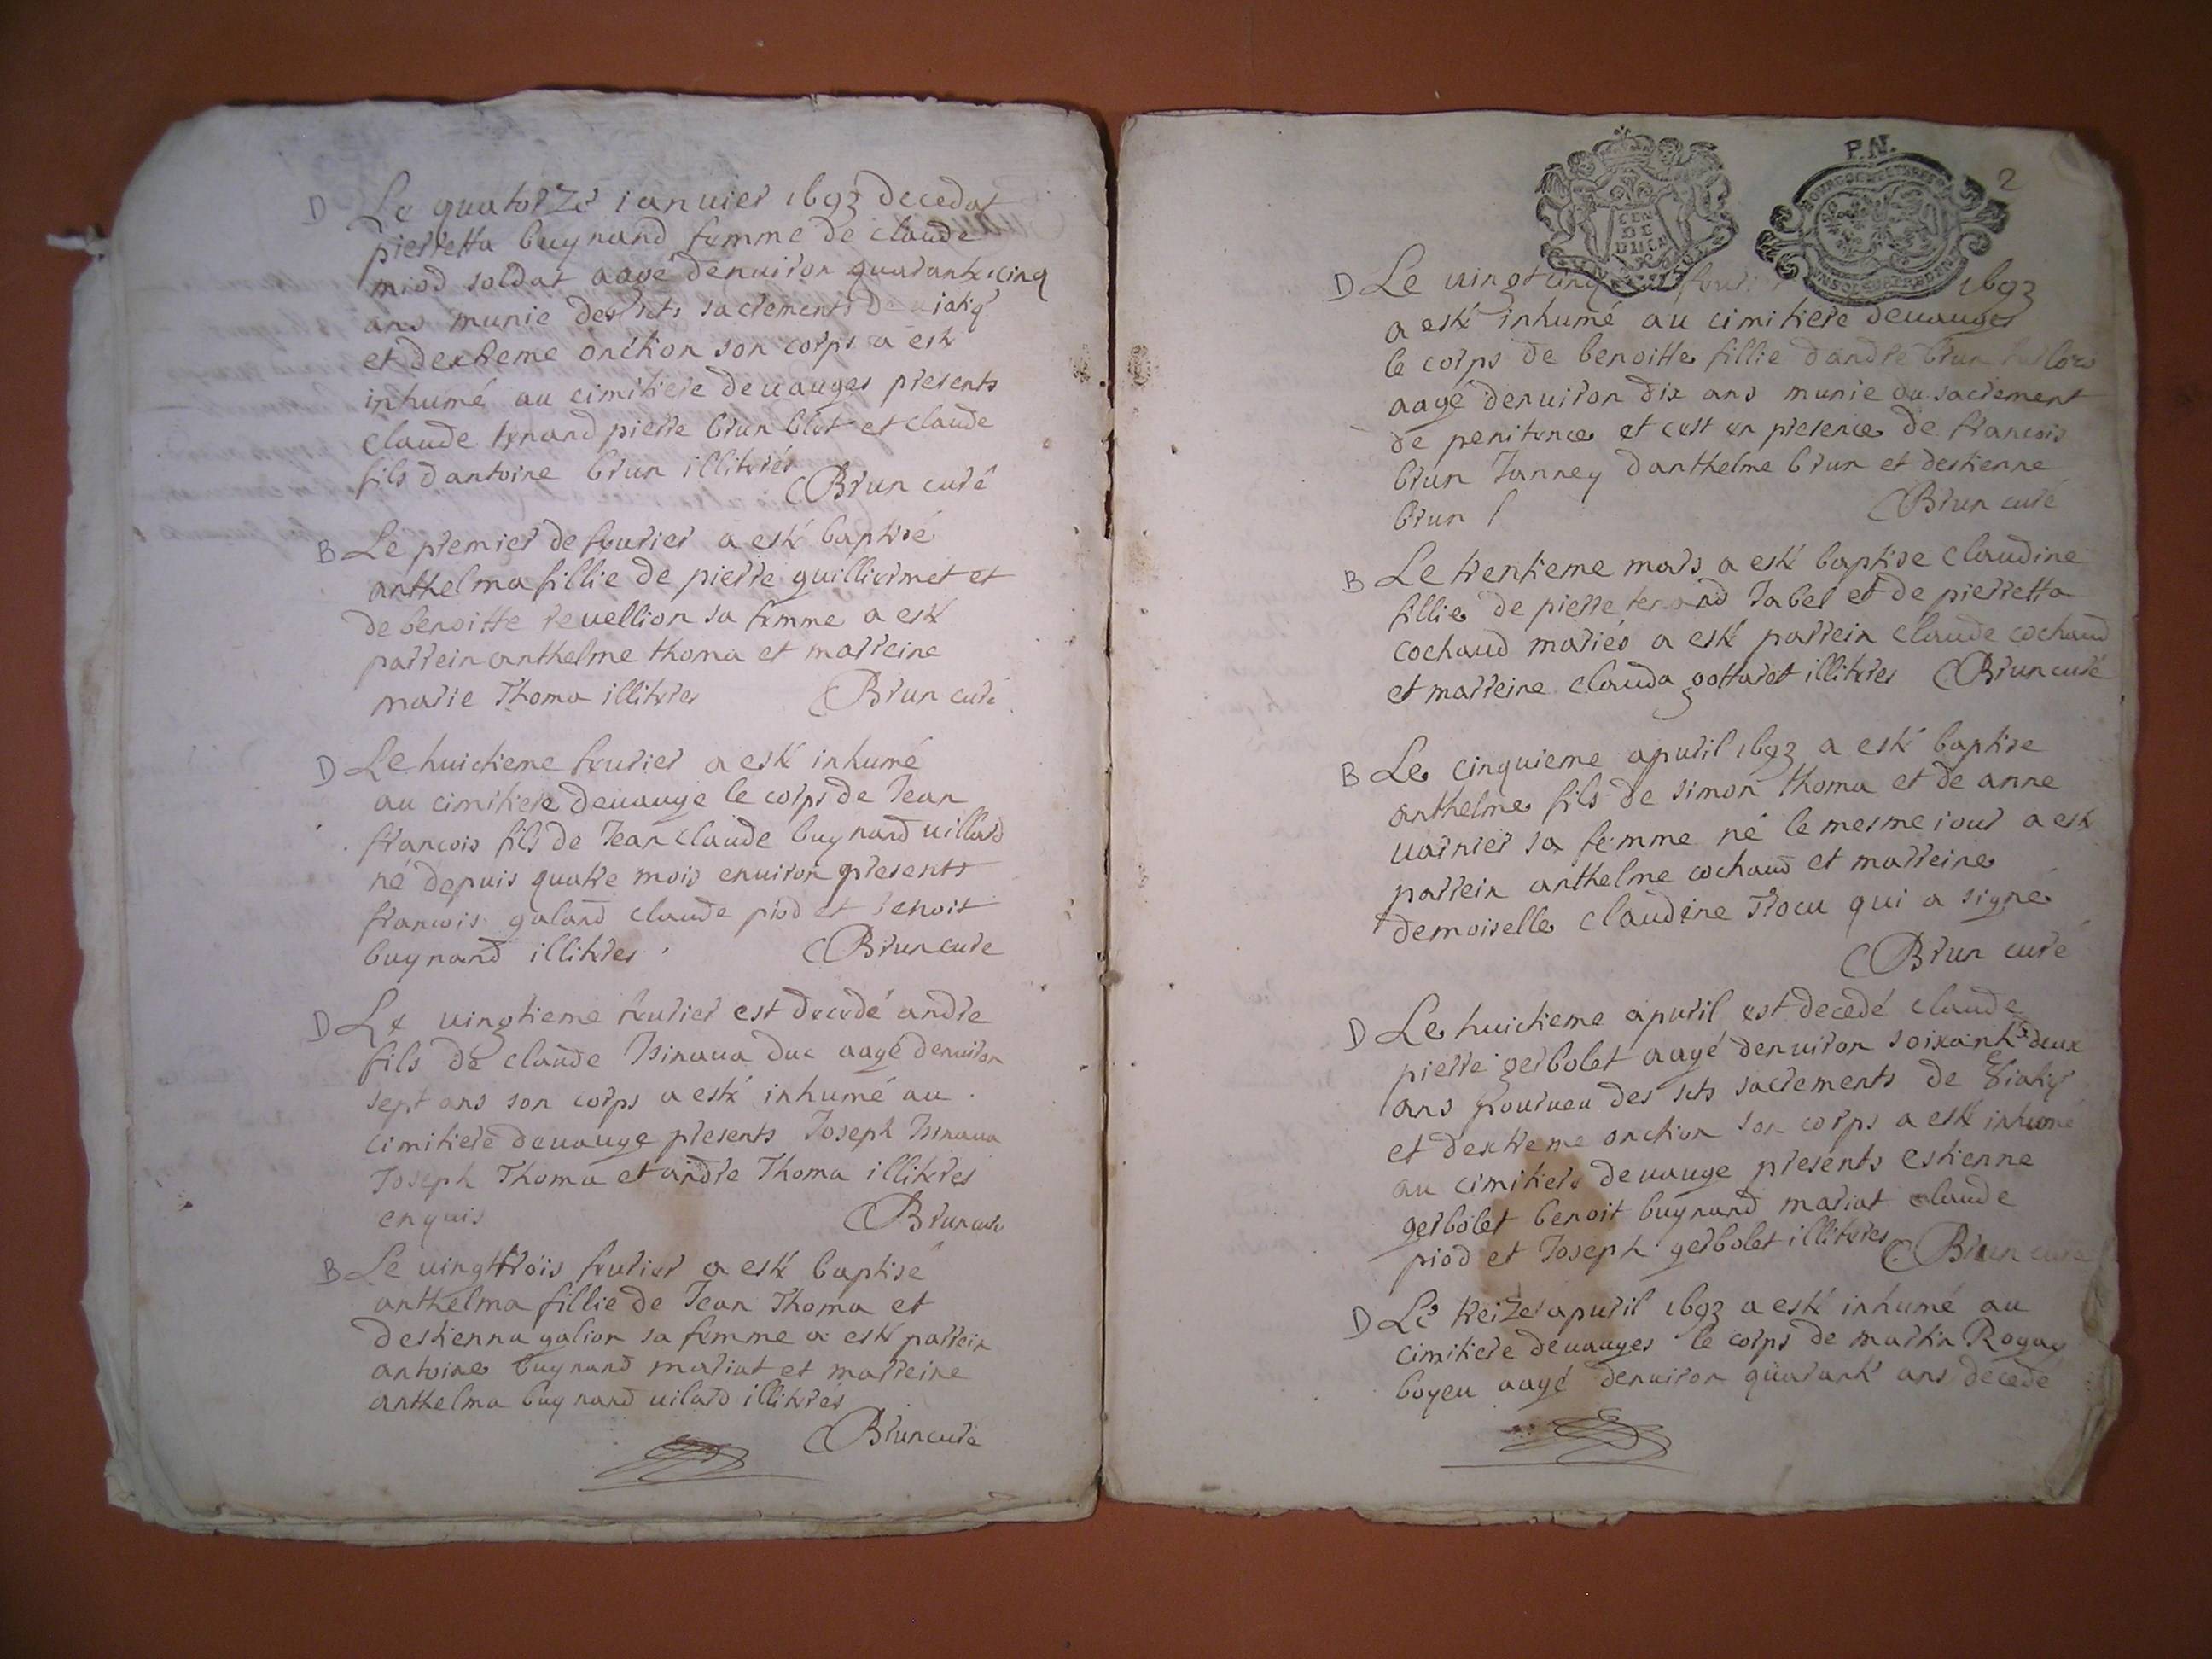 D Le quatorze ianuier 1693 decedat
pierretta buynand femme de claude
miod soldat aagé denuiron quarante cinq
ans munie des scts sacrements de uiatiq
et dextreme onction son corps a esté
inhumé au cimitiere deuauges presents
claude tenand pierre brun blot et claude
fils dantoine brun illiterés
Brun curé
B Le premier de feurier a esté baptisé
anthelma fillie de pierre guilliermet et
de benoitte reuellion sa femme a esté
parrein anthelme thoma et marreine
marie Thoma illiteres Brun curé
D Le huictieme feurier a esté inhumé
au cimitiere deuauge le corps de Jean
francois fils de Jean claude buynand uillard
né depuis quatre mois enuiron presents
francois galand claude piod et benoit
buynand illiteres Brun cure
D Le uingtieme feurier est decedé andre
fils de claude Tsinaua duc aagé denuiron
sept ans son corps a esté inhumé au
cimitiere deuauge presents Joseph Tsinaua
Joseph Thoma et andre Thoma illiteres
enquis Brun curé
B Le uingttrois feurier a esté baptisé
anthelma fillie de Jean Thoma et
destienna galion sa femme a esté parrein
antoine buynand mariat et marreine
anthelma buynand uilard illiterés
Brun curé
P.N.
2
CEN
DE
D Le uingt cinq feurier 1693
a esté inhumé au cimitiere deuauges
le corps de benoitte fillie dandre brun
aagé denuiron dix ans munie du sacrement
de penitence et cest en presence de francois
brun Janney danthelme brun et destienne
brun Brun curé
B Le trentieme mars a esté baptise claudine
fillie de pierre tenand Jabel et de pierretta
cochaud mariés a esté parrein claude cochaud
et marreine clauda gottaret illiteres Brun curé
B Le cinquieme apuril 1693 a esté baptise
anthelme fils de simon thoma et de anne
uarnier sa femme né le mesme iour a esté
parrein anthelme cochaud et marreine
demoiselle claudine Trocu qui a signé
Brun curé
D Le huictieme apuril est decedé claude
pierre gerbolet aagé denuiron soixante deux
ans pourueu des scts sacrements de uiatiq
et dextreme onction son corps a esté inhumé
au cimitiere deuauge presents estienne
gerbolet benoit buynand mariat claude
piod et Joseph gerbolet illiteres Brun curé
D Le treize apuril 1693 a esté inhumé au
cimitiere deuauges le corps de martin Rogay
boyeu aagé denuiron quarante ans decedé